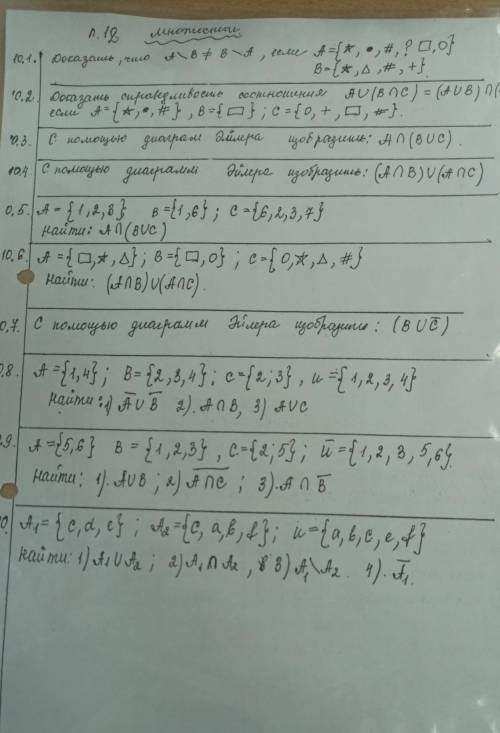 п.12 множества
10.1. Доказать, что A \ B ≠ B \ A, если A={*, •, #, ? □, 0}
B={*, △, #, +}.
10.2. Доказать справедливость соотношения A∪(B∩C)=(A∪B)∩(
если A={*, •, #}, B={□}; C={0, +, □, #}.
0.3. С помощью диаграм Эйлера изобразить: A∩(B∪C).
10.4. С помощью диаграмм Эйлера изобразить: (A∩B)∪(A∩C)
0.5. A={1,2,3} B={1,6}; C={6,2,3,7}
Найти: A∩(B∪C)
10.6. A={□,*,△}; B={□,0}; C={0,*,△,#}
Найти: (A∩B)∪(A∩C).
0.7. С помощью диаграмм Эйлера изобразить: (B∪C̅)
0.8. A={1,4}; B={2,3,4}; C={2;3}, U={1,2,3,4}
Найти: 1) A̅∪B̅ 2). A∩B, 3) A∪C
.9. A={5,6} B={1,2,3}, C={2;5}; U̅={1,2,3,5,6}.
Найти: 1). A∪B; 2) A̅∩̅C̅; 3). A∩B̅
0. A₁={c,d,e}; A₂={c,a,b,f}; U={a,b,c,e,f}
Найти: 1) A₁∪A₂; 2) A₁∩A₂, 3) A₁\A₂ 4). A̅₁.